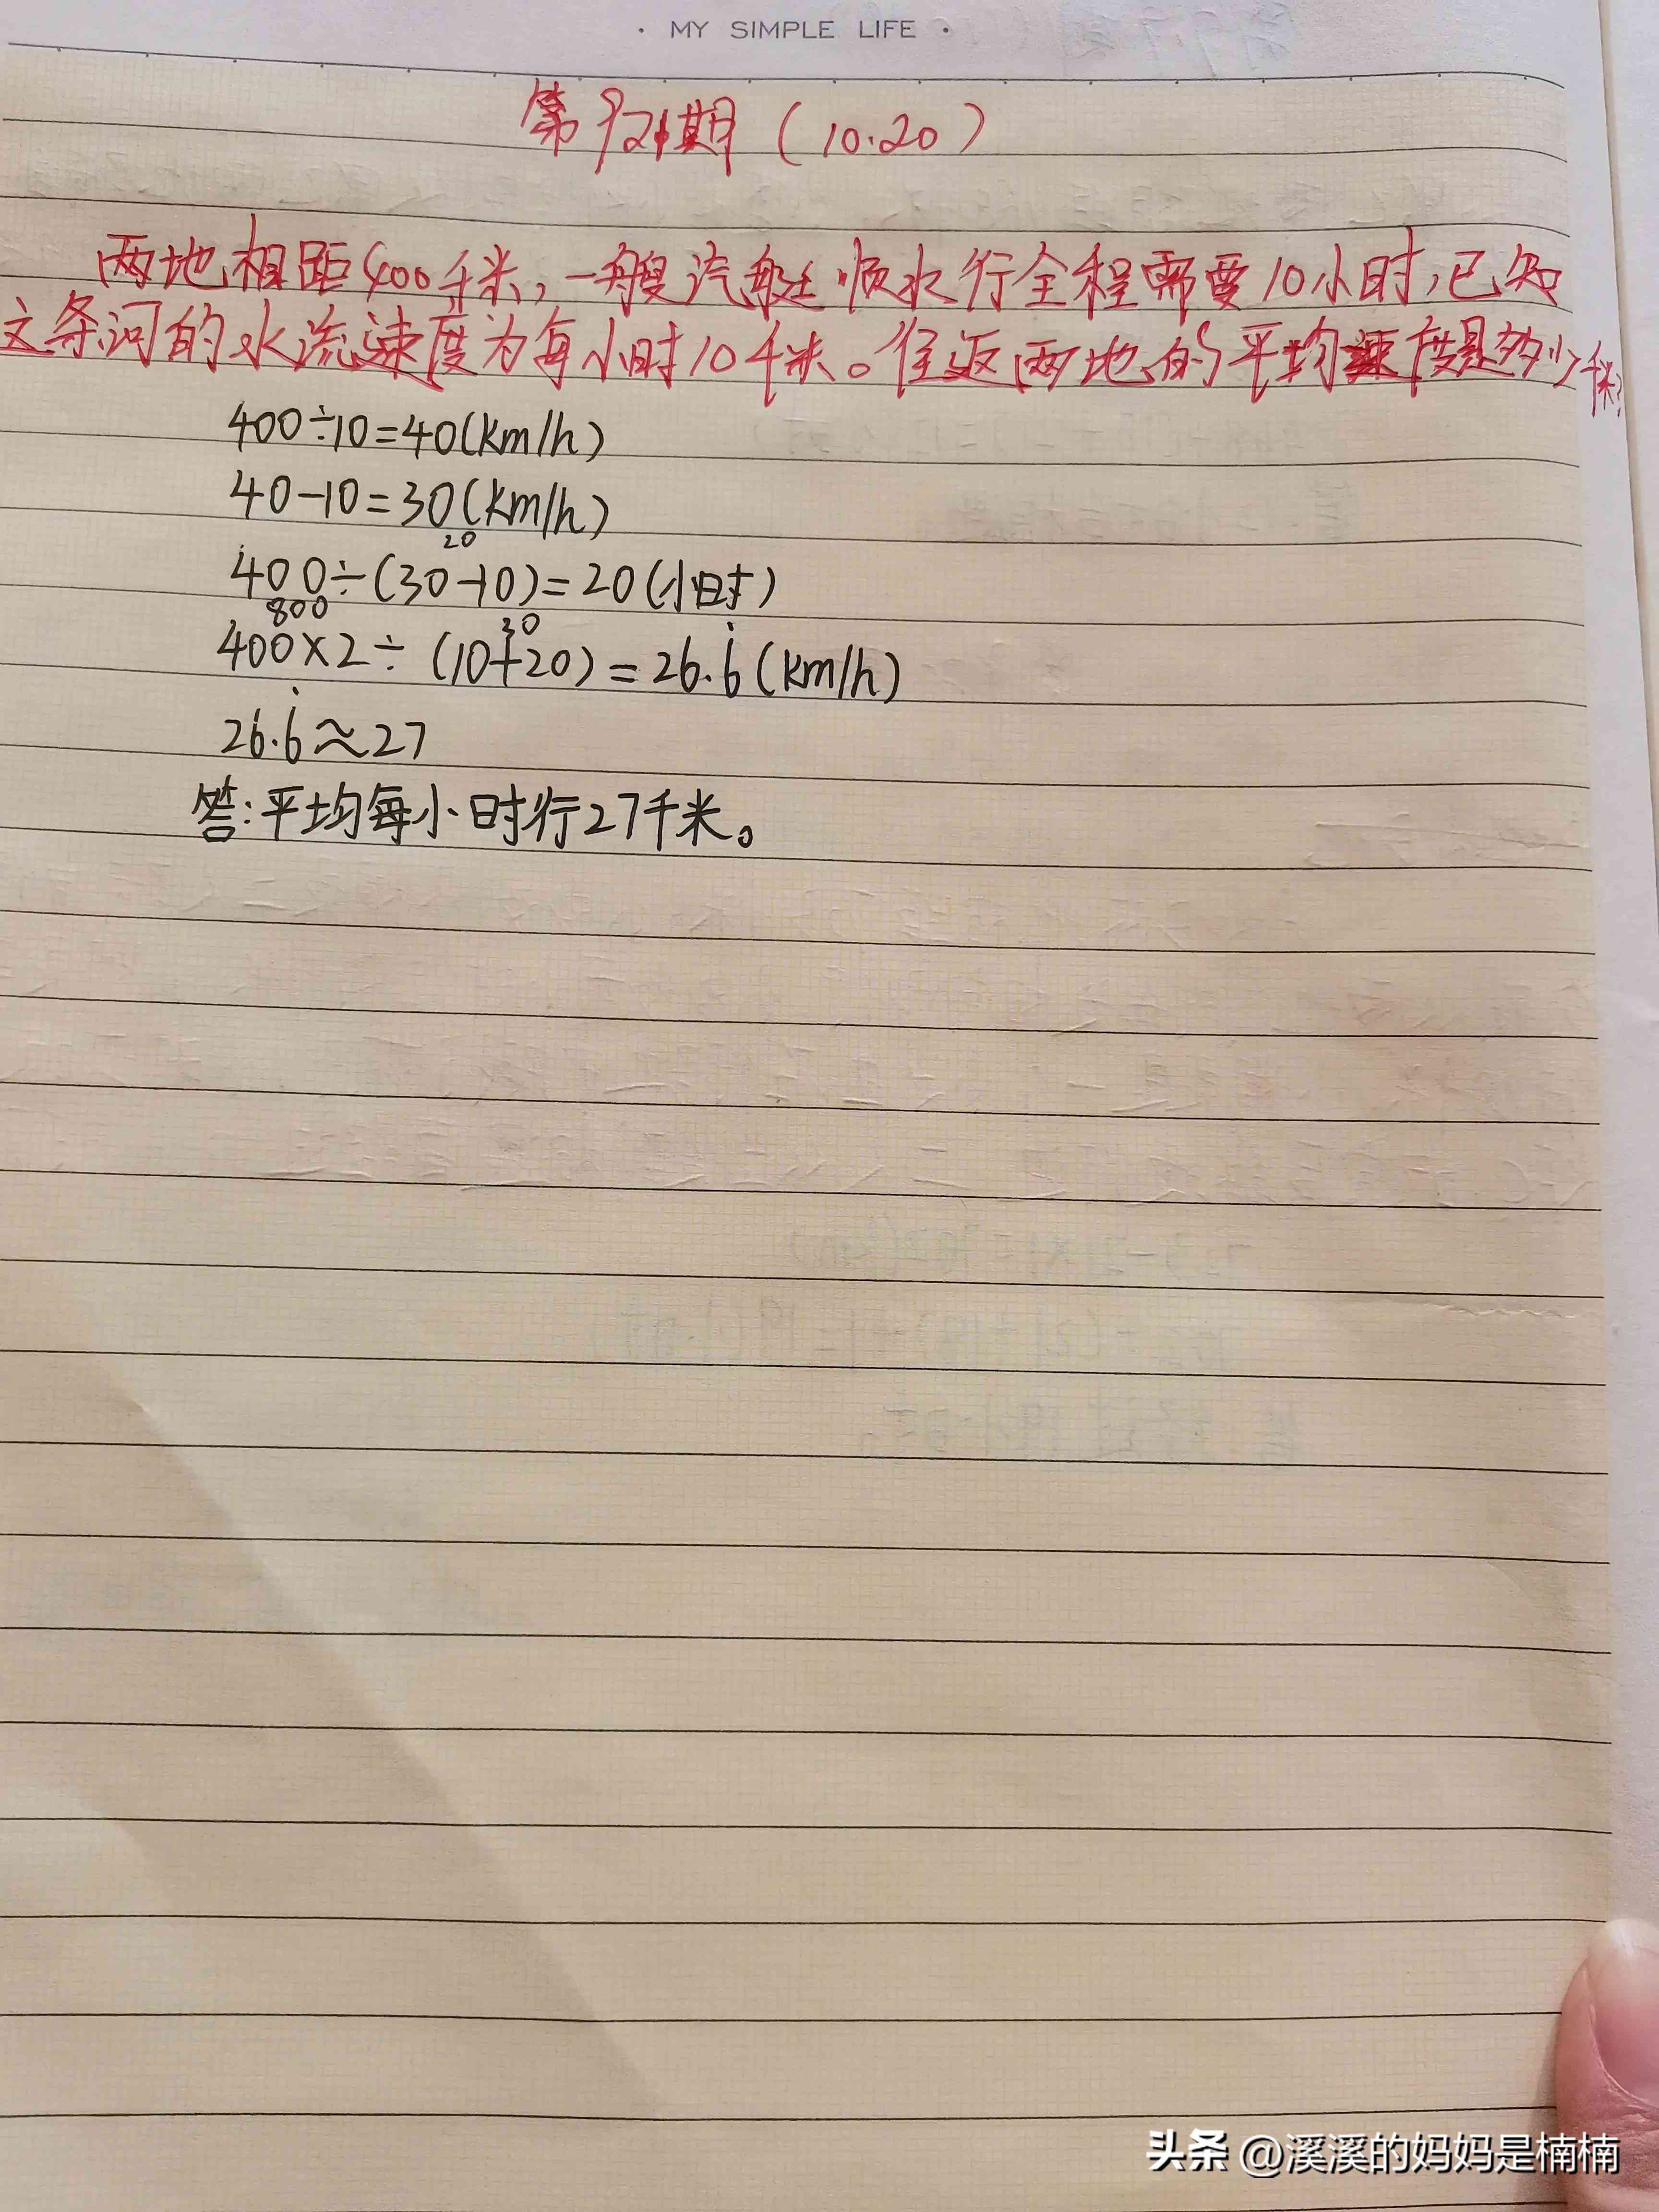 · MY SIMPLE LIFE ·
第921期(10.20)
两地相距400千米,一艘汽艇顺水行全程需要10小时,已知
这条河的水流速度为每小时10千米。往返两地的平均速度是多少千米?
400÷10=40(km/h)
40-10=30(km/h)
20
400÷(30-10)=20(小时)
800
30
400×2÷(10+20)=26.6̇(km/h)
26.6̇≈27
答:平均每小时行27千米。
头条 @溪溪的妈妈是楠楠